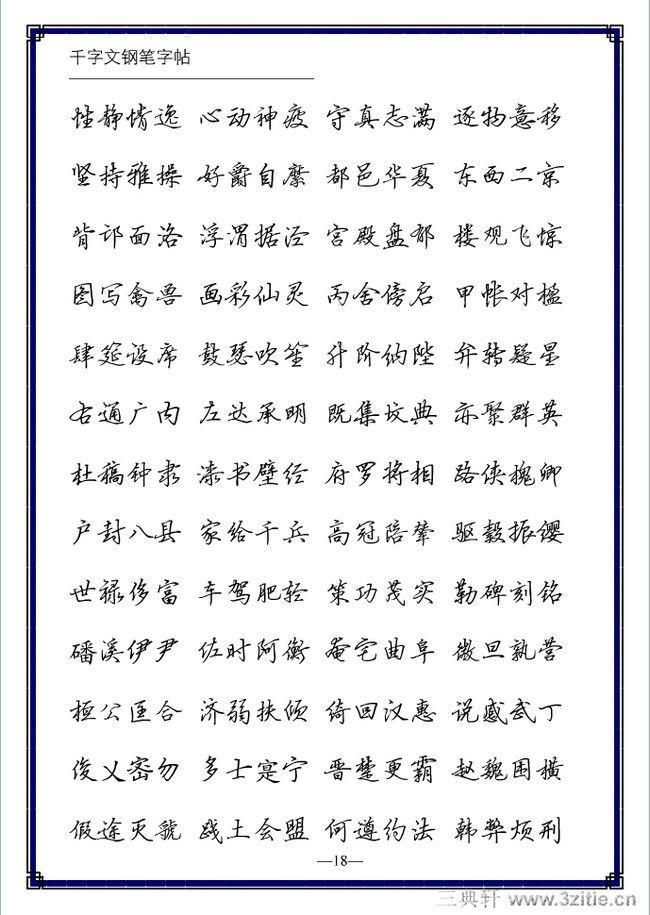 千字文钢笔字帖
性静情逸 心动神疲 守真志满 逐物意移
坚持雅操 好爵自縻 都邑华夏 东西二京
背邙面洛 浮渭据泾 宫殿盘郁 楼观飞惊
图写禽兽 画彩仙灵 丙舍傍启 甲帐对楹
肆筵设席 鼓瑟吹笙 升阶纳陛 弁转疑星
右通广内 左达承明 既集坟典 亦聚群英
杜稿钟隶 漆书壁经 府罗将相 路侠槐卿
户封八县 家给千兵 高冠陪辇 驱毂振缨
世禄侈富 车驾肥轻 策功茂实 勒碑刻铭
磻溪伊尹 佐时阿衡 奄宅曲阜 微旦孰营
桓公匡合 济弱扶倾 绮回汉惠 说感武丁
俊乂密勿 多士寔宁 晋楚更霸 赵魏困横
假途灭虢 践土会盟 何遵约法 韩弊烦刑
—18—
三典轩 www.3zitie.cn